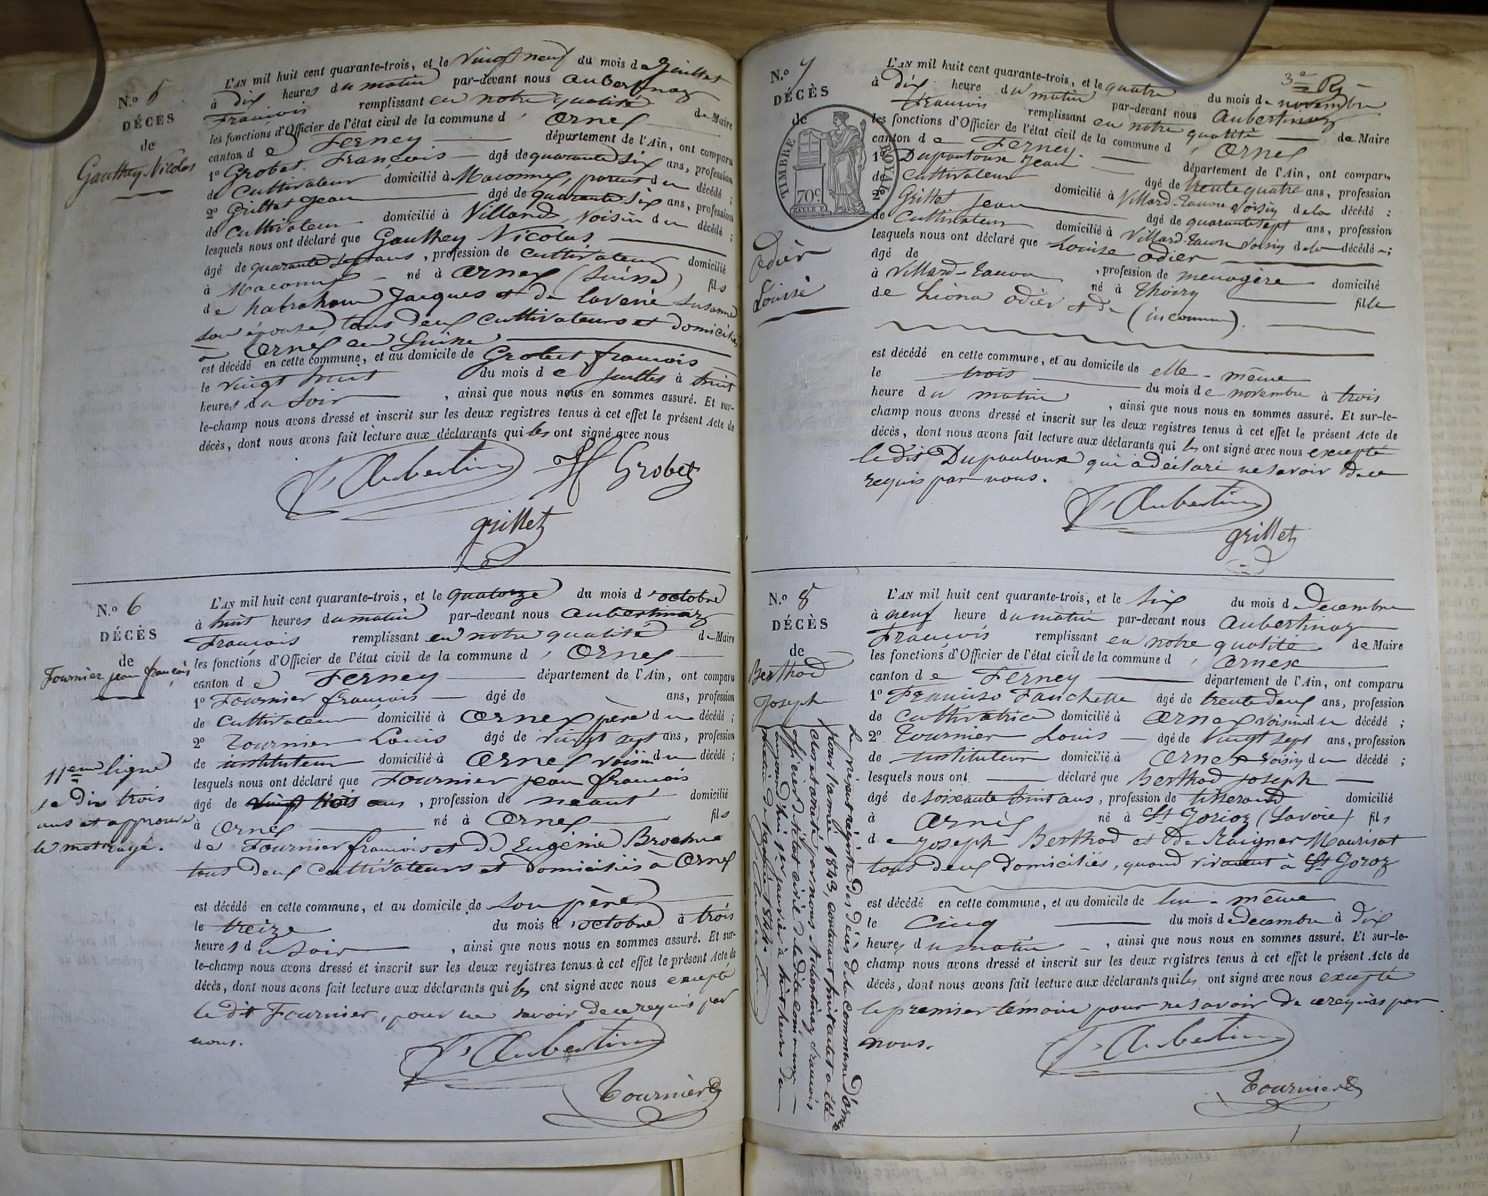 N.º 5
DÉCÈS
de
Gauthey Nicolas
L'AN mil huit cent quarante-trois, et le vingt neuf du mois de Juillet
à dix heures du matin par-devant nous Aubertinaz
François remplissant en notre qualité de Maire
les fonctions d'Officier de l'état civil de la commune d' Ornex
canton de Ferney département de l'Ain, ont comparu
1º Grobet François âgé de quarante six ans, profession
de Cultivateur domicilié à Maconnex, parent du décédé ;
2º Grillet Jean âgé de quarante six ans, profession
de Cultivateur domicilié à Villard, voisin du décédé ;
lesquels nous ont déclaré que Gauthey Nicolas
âgé de quarante ans, profession de cultivateur domicilié
à Maconnex né à Ornex (Suisse) fils
de habraham Jacques et de Susanne
son épouse, tous deux cultivateurs et domiciliés
à Ornex en Suisse
est décédé en cette commune, et au domicile de Grobet françois
le vingt huit du mois de Juillet à huit
heures du soir, ainsi que nous nous en sommes assuré. Et sur-
le-champ nous avons dressé et inscrit sur les deux registres tenus à cet effet le présent Acte de
décès, dont nous avons fait lecture aux déclarants qui les ont signé avec nous
F. Aubertin Grobet
grillet
N.º 6
DÉCÈS
de
Fournier jean françois
11eme ligne
je dis trois
ans et approuve
le mot rayé.
L'AN mil huit cent quarante-trois, et le quatorze du mois d'octobre
à huit heures du matin par-devant nous Aubertinaz
François remplissant en notre qualité de Maire
les fonctions d'Officier de l'état civil de la commune d' Ornex
canton de Ferney département de l'Ain, ont comparu
1º Fournier françois âgé de ans, profession
de Cultivateur domicilié à Ornex père du décédé ;
2º Tournier Louis âgé de vingt sept ans, profession
de instituteur domicilié à Ornex voisin du décédé ;
lesquels nous ont déclaré que Fournier jean françois
âgé de vingt trois ans, profession de néant domicilié
à Ornex né à Ornex fils
de Fournier françois et de Eugénie Brochue
tous deux cultivateurs et domiciliés à Ornex
est décédé en cette commune, et au domicile de son père
le treize du mois d'octobre à trois
heures du soir, ainsi que nous nous en sommes assuré. Et sur-
le-champ nous avons dressé et inscrit sur les deux registres tenus à cet effet le présent Acte de
décès, dont nous avons fait lecture aux déclarants qui les ont signé avec nous excepté
le dit Fournier, pour ne savoir de ce requis par
nous.
F. Aubertin
Tournier
3e Rg
N.º 7
DÉCÈS
de
TIMBRE ROYAL
70c
Odier
Louise
L'AN mil huit cent quarante-trois, et le quatre du mois de novembre
à dix heure du matin par-devant nous Aubertinaz
François remplissant en notre qualité de Maire
les fonctions d'Officier de l'état civil de la commune d' Ornex
canton de Ferney département de l'Ain, ont comparu
1º Dupontoux Jean âgé de trente quatre ans, profession
de Cultivateur domicilié à Villard-Tacon voisin de la décédé ;
2º Grillet Jean âgé de quarante sept ans, profession
de Cultivateur domicilié à Villard Tacon voisin de la décédé ;
lesquels nous ont déclaré que Louise Odier
âgé de , profession de menagère domicilié
à Villard-Tacon né à Thoiry fille
de Odier et de (inconnu).
est décédé en cette commune, et au domicile de elle-même
le trois du mois de novembre à trois
heure du matin, ainsi que nous nous en sommes assuré. Et sur-le-
champ nous avons dressé et inscrit sur les deux registres tenus à cet effet le présent Acte de
décès, dont nous avons fait lecture aux déclarants qui les ont signé avec nous excepté
le dit Dupontoux qui a déclaré ne savoir de ce
requis par nous.
F. Aubertin
grillet
N.º 8
DÉCÈS
de
Berthod
Joseph
L'AN mil huit cent quarante-trois, et le six du mois de Decembre
à neuf heure du matin par-devant nous Aubertinaz
François remplissant en notre qualité de Maire
les fonctions d'Officier de l'état civil de la commune d' Ornex
canton de Ferney département de l'Ain, ont comparu
1º Fanchette âgé de trente deux ans, profession
de Cultivatrice domicilié à Ornex voisin du décédé ;
2º Tournier Louis âgé de vingt sept ans, profession
de instituteur domicilié à Ornex voisin du décédé ;
lesquels nous ont déclaré que Berthod Joseph
âgé de soixante huit ans, profession de tisserand domicilié
à Ornex né à St Jorioz (Savoie) fils
de Joseph Berthod et de
tous deux domiciliés, quand vivaient à St Joroz
est décédé en cette commune, et au domicile de lui-même
le Cinq du mois de Decembre à dix
heures du matin, ainsi que nous nous en sommes assuré. Et sur-le-
champ nous avons dressé et inscrit sur les deux registres tenus à cet effet le présent Acte de
décès, dont nous avons fait lecture aux déclarants qui les ont signé avec nous excepté
le premier témoin pour ne savoir de ce requis par
nous.
F. Aubertin
Tournier
Le présent régistre des Décès de la commune d'Ornex
pour l'année 1843, contenant huit actes a été
clos et arrêté par nous Aubertinaz françois
officier d'état civil de la dite commune
aujourd'hui 1er janvier à huit heures du
matin 1844.